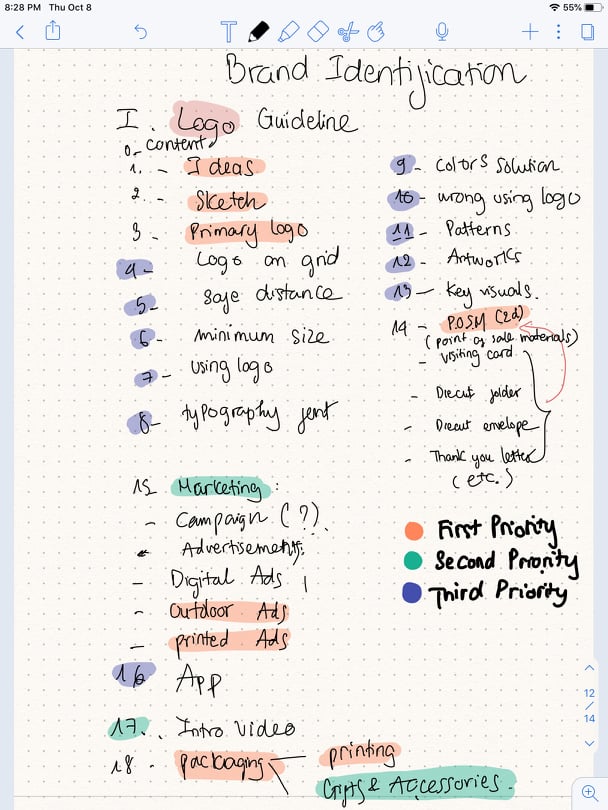 8:28 PM Thu Oct 8
55%
Brand Identification
I. Logo Guideline
0- content
1. - Ideas
2. - Sketch
3 - Primary logo
4- Logo on grid
5- safe distance
6- minimum size
7- using logo
8- typography font
9- colors solution
10- wrong using logo
11- Patterns
12- Artworks
13- Key visuals.
14 - P.O.S.M (2d)
(point of sale materials)
- visiting card
- Diecut folder
- Diecut envelope
- Thank you letter
(etc.)
15 Marketing:
- Campaign (?)
Advertisements:
- Digital Ads
- Outdoor Ads
- printed Ads
16 App
17. Intro Video
18 - packaging
printing
Gifts & Accessories.
First Priority
Second Priority
Third Priority
12
/
14